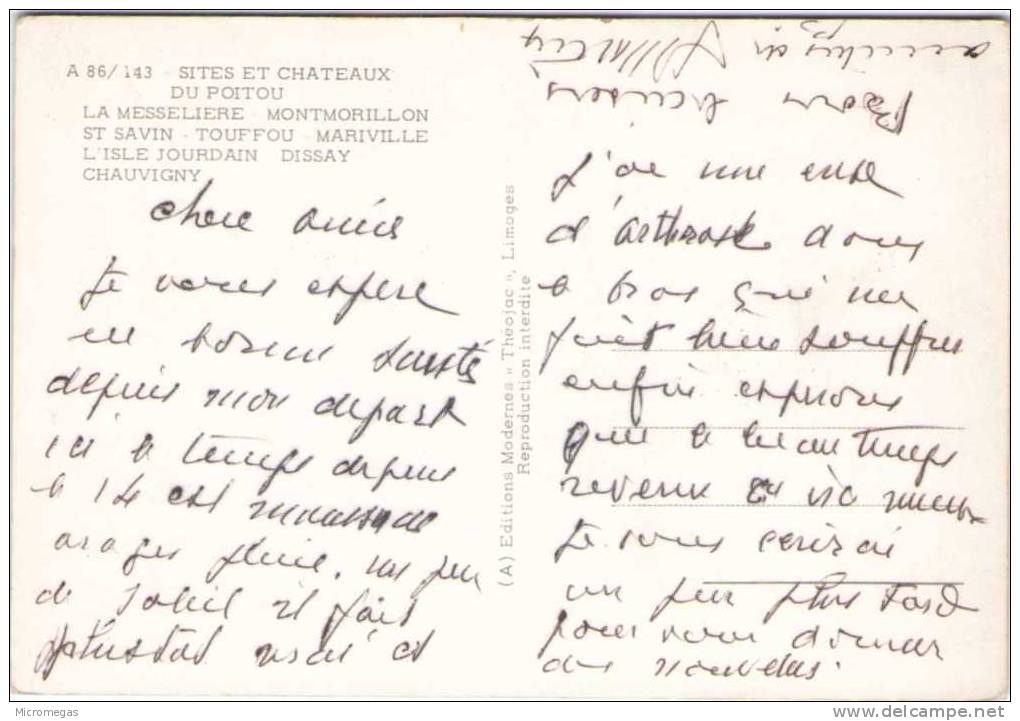 A 86/143 SITES ET CHATEAUX
DU POITOU
LA MESSELIERE - MONTMORILLON
ST SAVIN - TOUFFOU - MARIVILLE
L'ISLE JOURDAIN DISSAY
CHAUVIGNY
(A) Editions Modernes « Théojac », Limoges
Reproduction interdite
Chere amie
Je vous espere
en bonne santé
depuis mon depart
ici le temps depuis
le 14 est maussade
orages pluie, un peu
de soleil il fait
plustot frais et
j'ai une crise
d'arthrose dans
le bras qui me
fait bien souffrir
enfin esperons
que le beau temps
revenu
Je vous ecrirai
un peu plus tard
pour vous donner
des nouvelles.
Bons baisers
Micromegas
delcampe.net